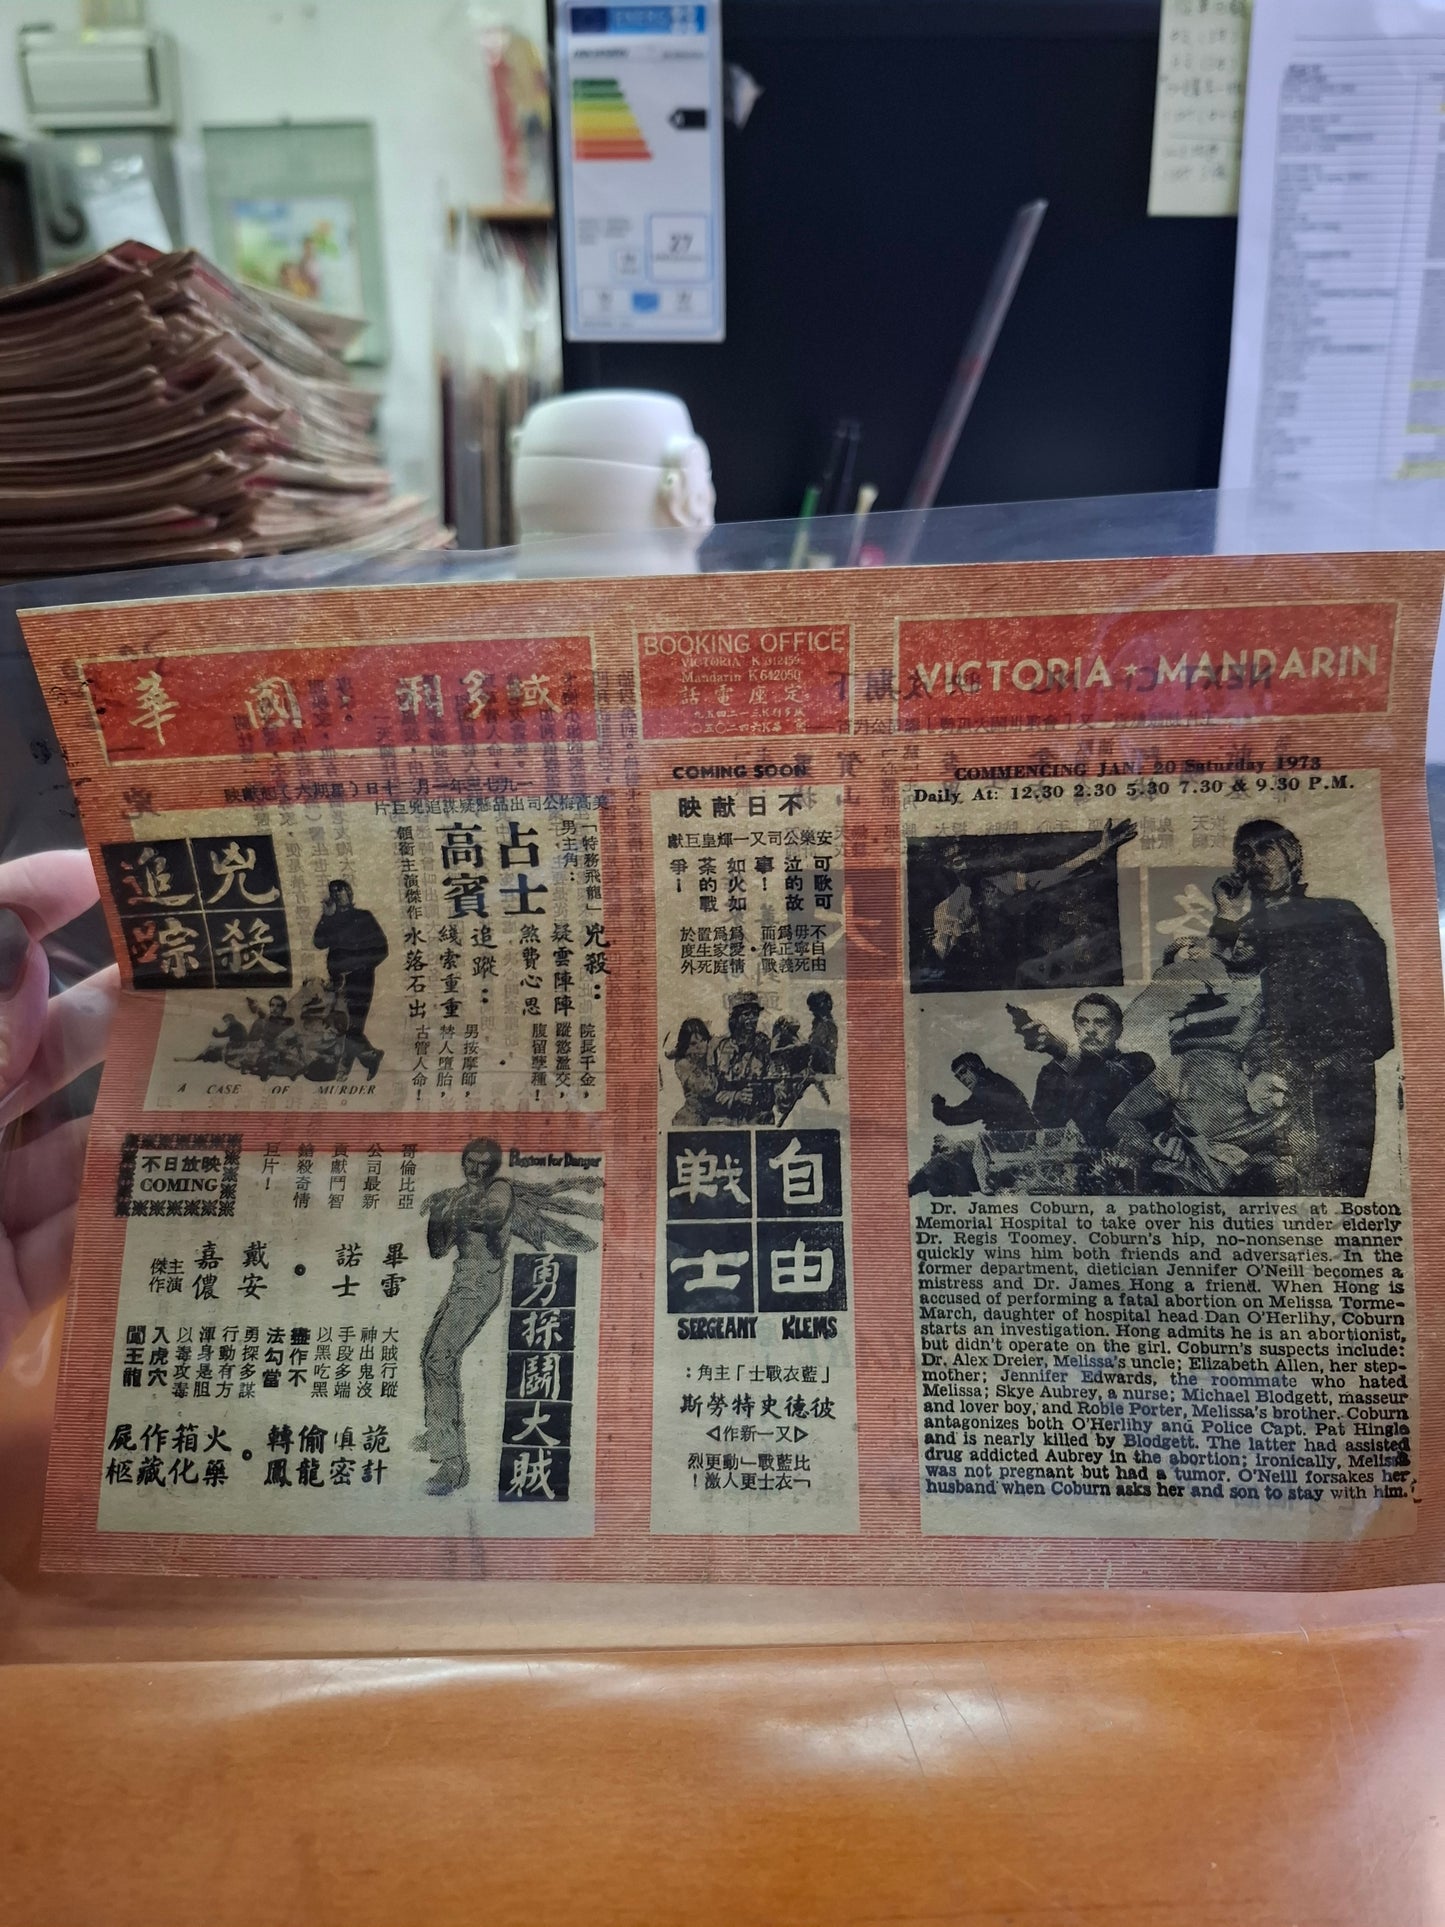 ENERG
27
華國 利多域
BOOKING OFFICE
VICTORIA K 312459
Mandarin K 642050
話電座定
VICTORIA ★ MANDARIN
映獻起(六期星)日十二月一年三七九一
片巨兇追謀疑懸品出司公梅高美
兇殺
追踪
「特務飛龍」
男主角:
占士
高賓
領銜主演傑作
兇殺:
疑雲陣陣
煞費心思
追蹤:
綫索重重
水落石出
院長千金,
蹤慾濫交,
腹留孽種!
男按摩師,
替人墮胎,
古管人命!
A CASE OF MURDER
映放日不
COMING
哥倫比亞
公司最新
貢獻鬥智
鎗殺奇情
巨片!
Passion for Danger
畢雷
諾士
•
戴安
嘉儂
主演
傑作
勇探鬪大賊
大賊行蹤
神出鬼沒
手段多端
以黑吃黑
盡作不
法勾當
勇探多謀
行動有方
渾身是胆
以毒攻毒
入虎穴
闖王龍
詭計
填密
偷龍
轉鳳
•
火藥
箱化
作藏
屍柩
COMING SOON
映獻日不
獻巨皇輝一又司公樂安
可歌可
泣的故
事!
如火如
荼的戰
爭!
不自由
毋寧死
為正義
而作戰
•
為愛情
為家庭
置生死
於度外
自由
戰士
SERGEANT KLEMS
:角主「士戰衣藍」
斯勞特史德彼
◁作新一又▷
烈更動「戰藍比
!激人更士衣「
COMMENCING JAN. 20 Saturday 1973
Daily At: 12.30 2.30 5.30 7.30 & 9.30 P.M.
Dr. James Coburn, a pathologist, arrives at Boston
Memorial Hospital to take over his duties under elderly
Dr. Regis Toomey. Coburn's hip, no-nonsense manner
quickly wins him both friends and adversaries. In the
former department, dietician Jennifer O'Neill becomes a
mistress and Dr. James Hong a friend. When Hong is
accused of performing a fatal abortion on Melissa Torme-
March, daughter of hospital head Dan O'Herlihy, Coburn
starts an investigation. Hong admits he is an abortionist,
but didn't operate on the girl. Coburn's suspects include:
Dr. Alex Dreier, Melissa's uncle; Elizabeth Allen, her step-
mother; Jennifer Edwards, the roommate who hated
Melissa; Skye Aubrey, a nurse; Michael Blodgett, masseur
and lover boy, and Robie Porter, Melissa's brother. Coburn
antagonizes both O'Herlihy and Police Capt. Pat Hingle
and is nearly killed by Blodgett. The latter had assisted
drug addicted Aubrey in the abortion; ironically, Melissa
was not pregnant but had a tumor. O'Neill forsakes her
husband when Coburn asks her and son to stay with him.